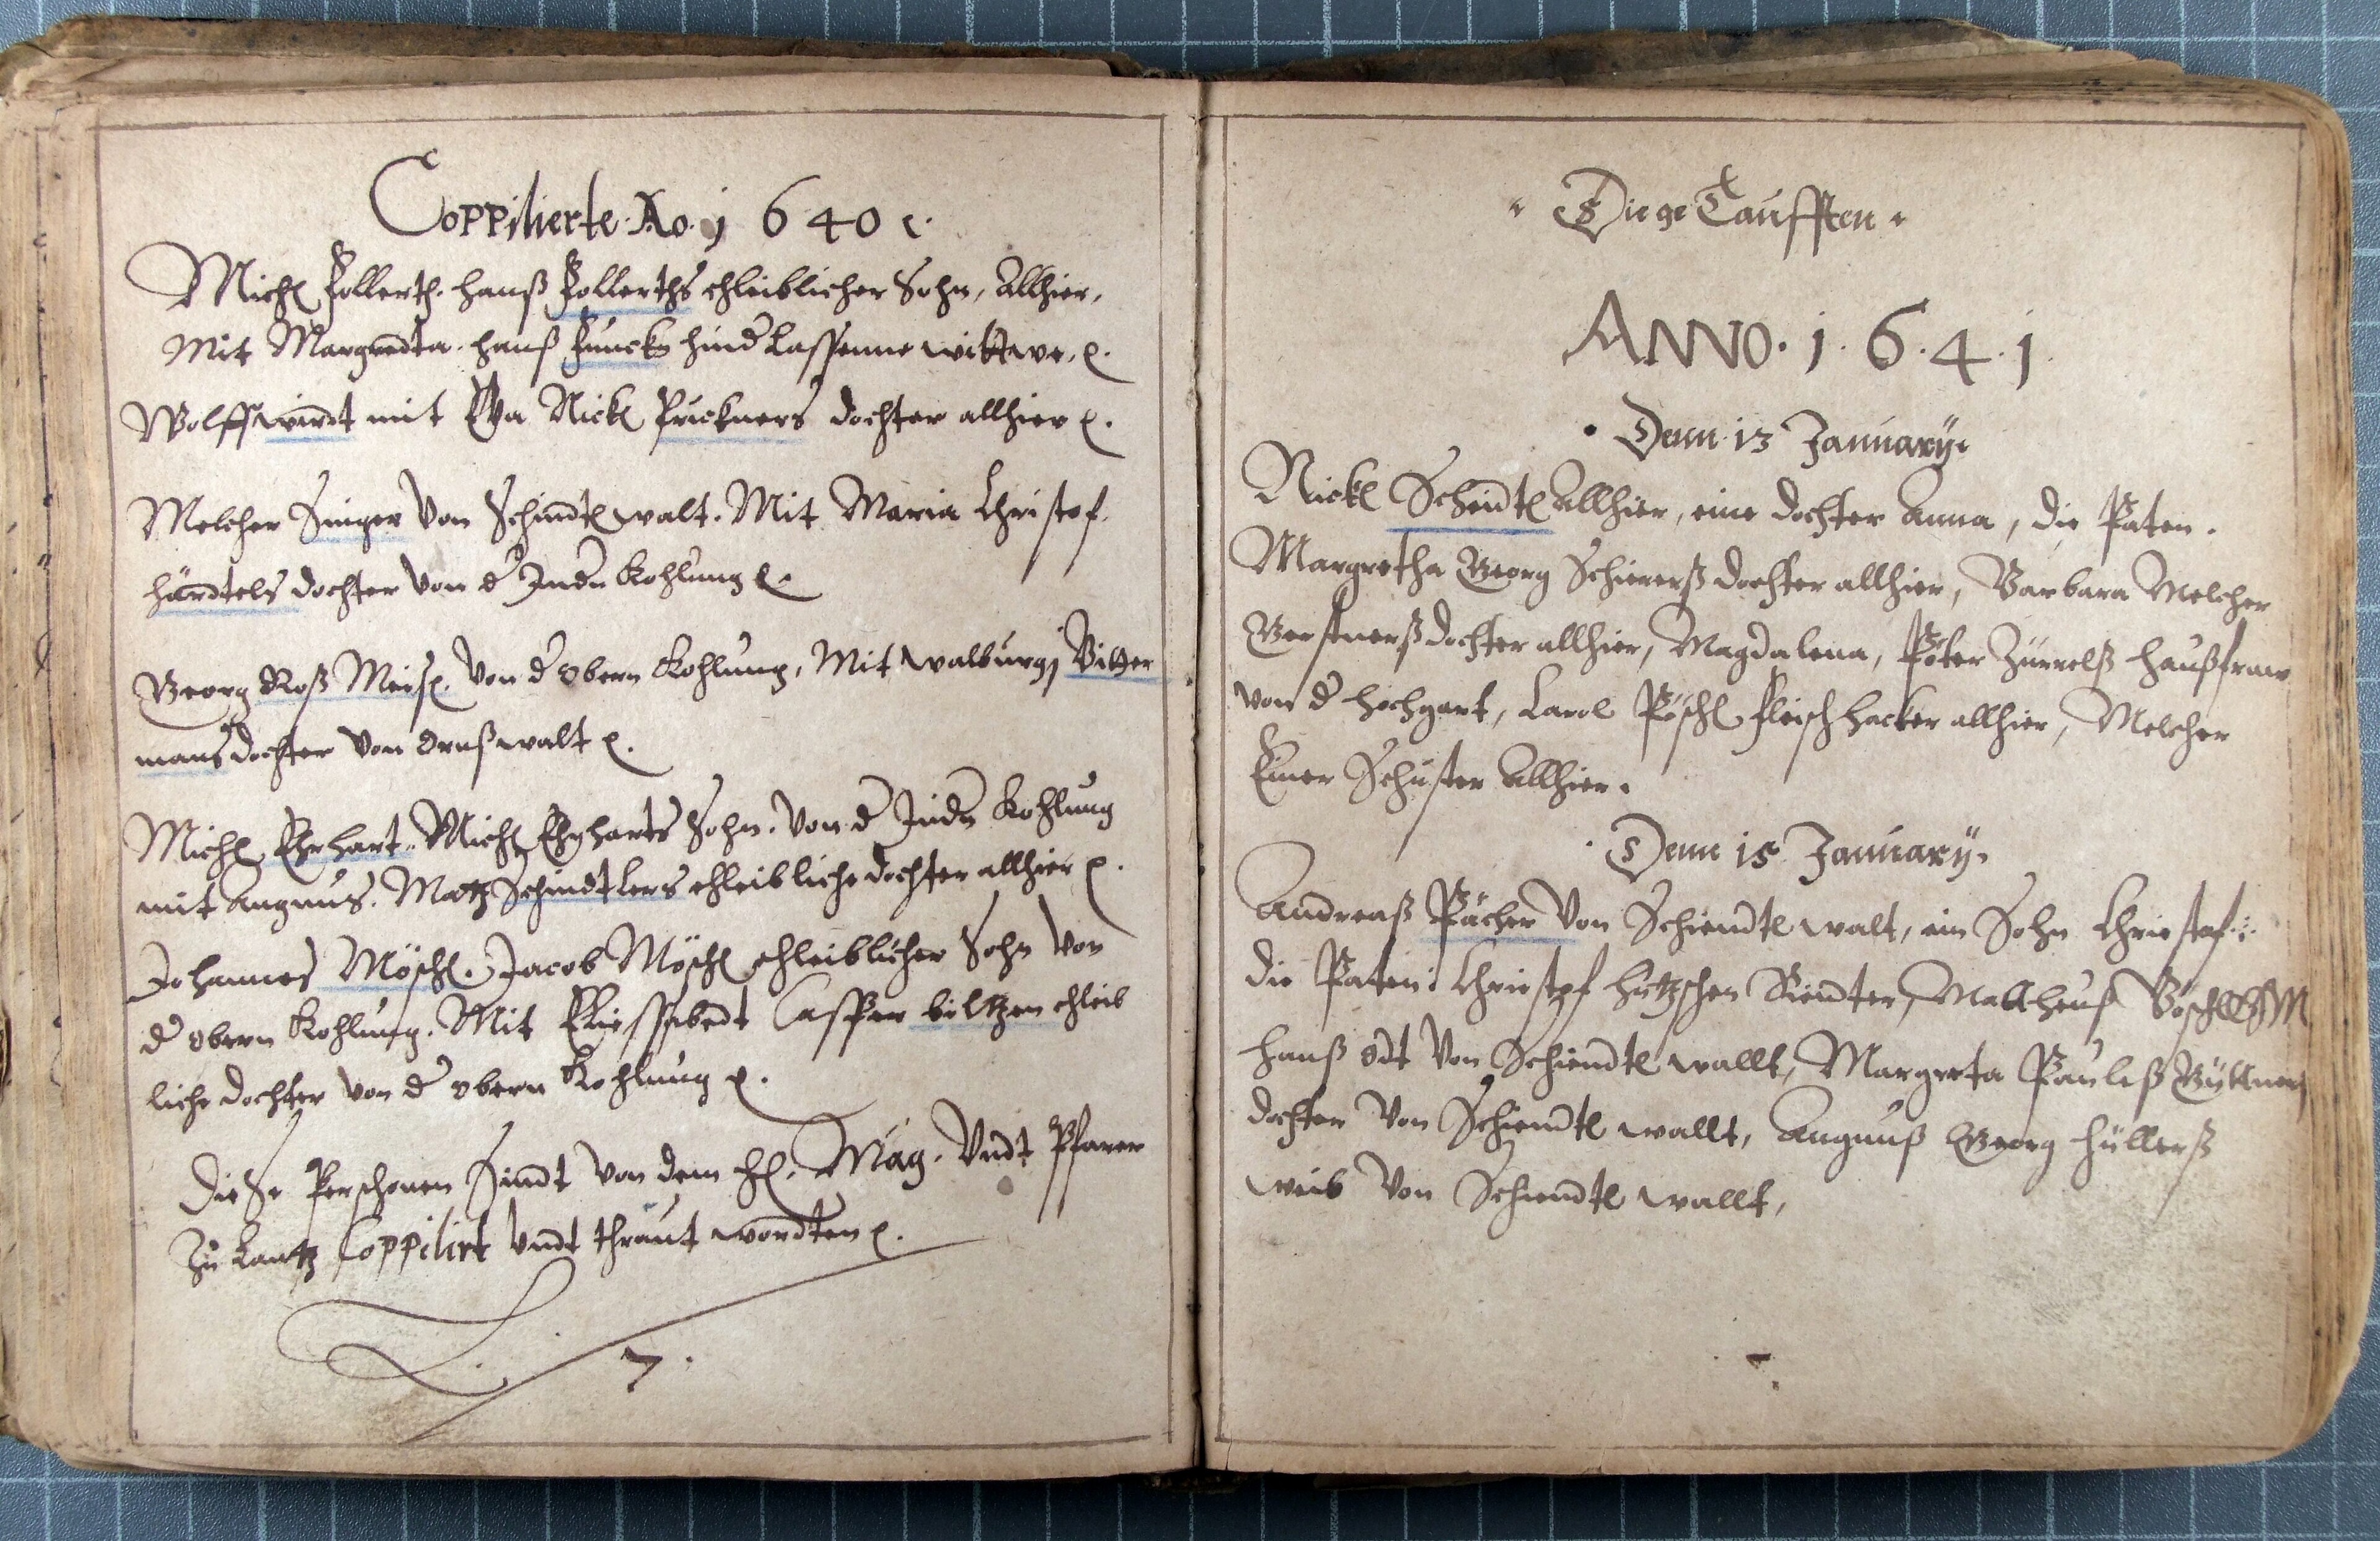 Coppilierte Ao. 1640 ꝛ.
Michl Follerth. Hanß Follerths ehleiblicher Sohn, Allhier,
Mit Margredta. Hanß Funckn hind Lassenne wittwe. ꝛ.
Wolff Wirdt mit Eva Nickl Pruckners dochter allhier ꝛ.
Melcher Singer Von Schindtl walt. Mit Maria Christof
Händtels dochter Von d Indn Kohlung ꝛ.
Georg Roß Meisl. Von d obern Kohlung, Mit Walburgj Bitter
mans dochter Von walt ꝛ.
Michl Ehrhart. Michl Ehrharts Sohn. Von d Indn Kohlung
mit Angnus. Matz Schindtlers ehleibliche dochter allhier ꝛ.
Johannes Möschl. Jacob Möschl ehleiblicher Sohn Von
d obern Kohlung. Mit Eliessabedt Casper biltzen ehleib
liche dochter von d obern Kohlung ꝛ.
Diese Perschonen Sindt Von dem hl. Mag. Vndt Pfarer
Zu Lantz Coppilirt Vndt thraut wordten ꝛ.
7.
Die ge Taufften
ANNO. 1. 6. 4. 1.
Denn 13 January.
Nickl Scheidtl Allhier, eine dochter Anna, die Paten.
Margretha Georg Schirerß dochter allhier, Barbara Melcher
Gerstnerß dochter allhier, Magdalena, Peter Zürrelß Haußfraw
von d Hochgart, Carol Pöschl fleischhacker allhier, Melcher
Schuster Allhier.
Denn 15 January.
Andreaß Pächer Von Schiendtl walt, ein Sohn Christof:
die Paten: Christof Matheuß
Hanß Odt Von Schiendtl wallt, Margreta Pauleß Büttners
dochter Von Schiendtl wallt, Angnuß Georg Hüllerß
weib Von Schiendtl wallt,